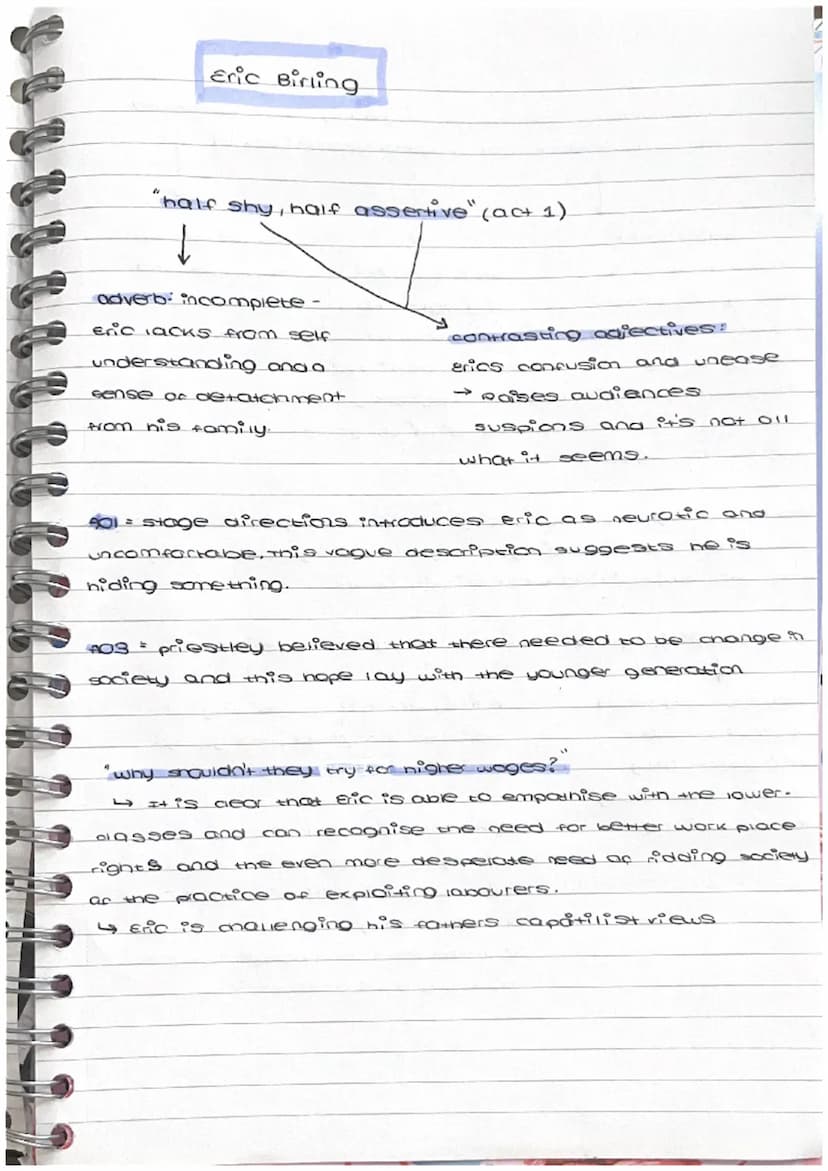 Eric Birling
"half shy, half assertive" (act 1)
adverb: incomplete -
Eric lacks from self
understanding and a
sense of detatchment
from his family.
contrasting adjectives:
erics confusion and unease
→ Raises audiences
suspions and it's not all
what it seems.
AO1 = stage directions introduces eric as neurotic and
uncomfortabe. this vague description suggests he is
hiding something.
AO3 = priestley believed that there needed to be change in
society and this hope lay with the younger generation
"why shouldn't they try for higher wages?"
↳ It is clear that Eric is able to empathise with the lower-
classes and can recognise the need for better work place
rights and the even more desperate need of ridding society
of the practice of exploiting labourers.
↳ Eric is challenging his fathers capitilist views